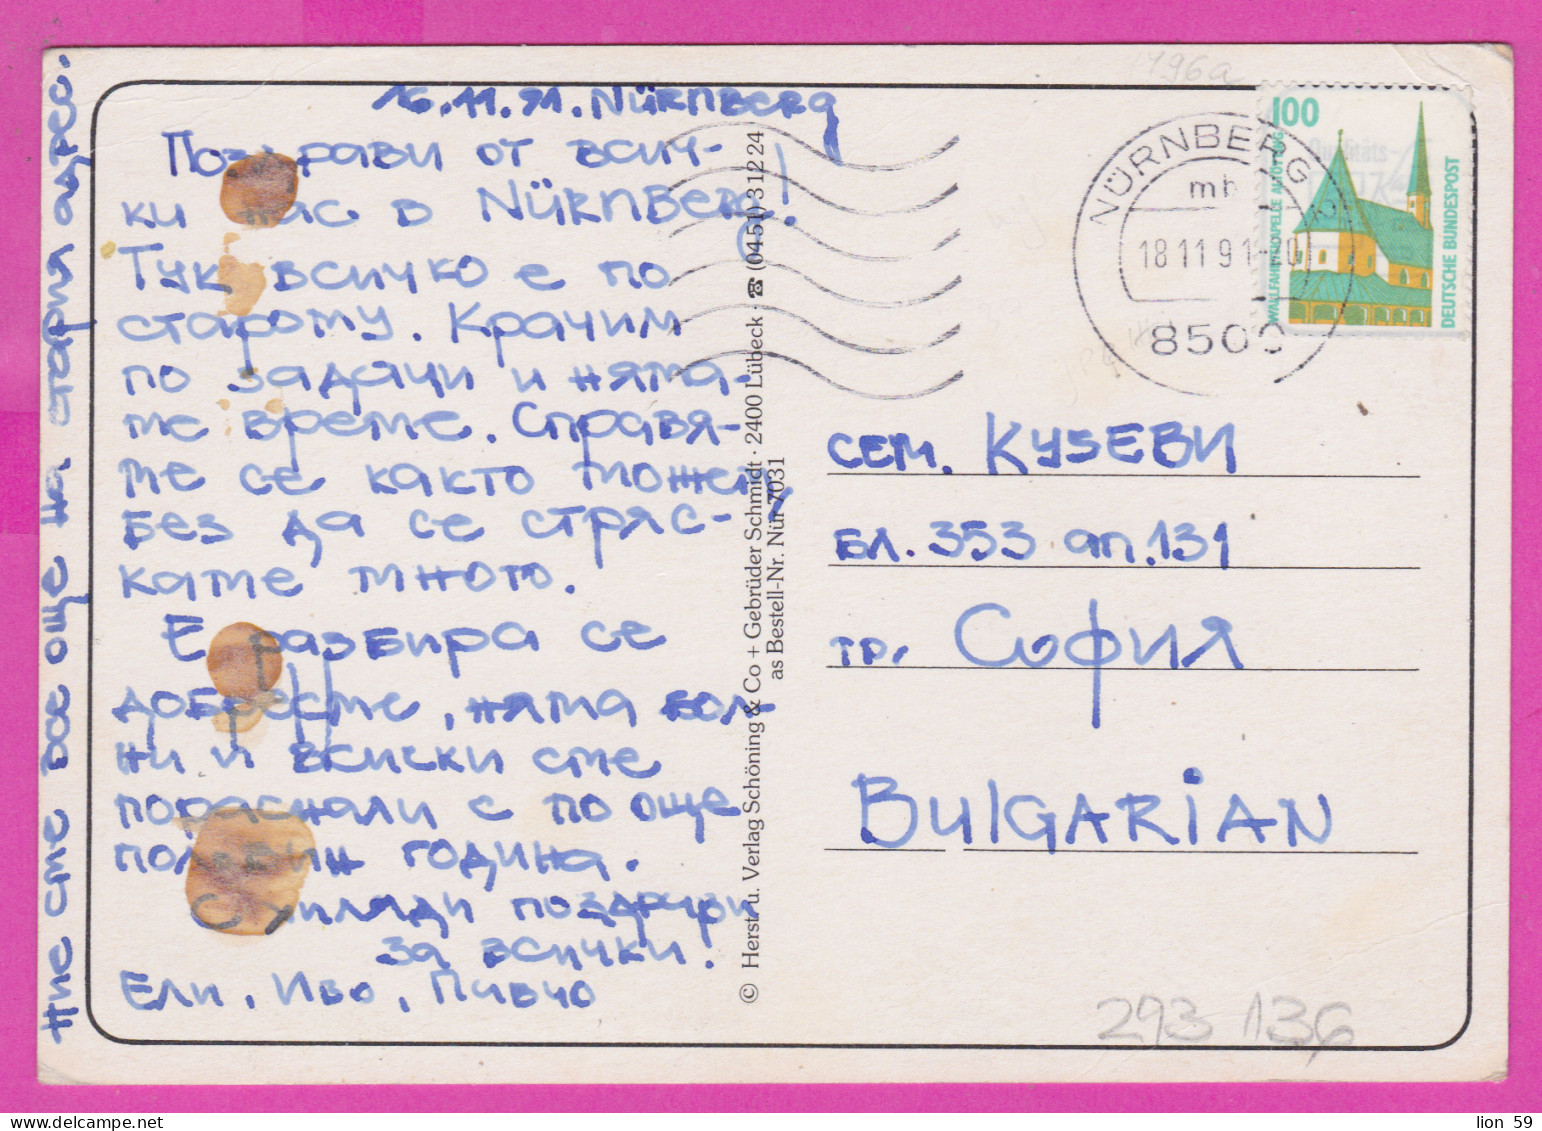 16.11.91. NÜRNBERG
Поздрави от всич-
ки нас в NÜRNBERG!
Тук всичко е по
старому. Крачим
по задачи и няма-
ме време. Справя-
ме се както можем,
без да се стряс-
каме много.
Е разбира се
добре сме, няма бол-
ни и всички сме
пораснали с по още
половин година.
С хиляди поздрави
за всички!
Ели, Иво, Пивчо
Ние сме все още на стария адрес.
© Herst. u. Verlag Schöning & Co + Gebrüder Schmidt · 2400 Lübeck · ☎ (04 51) 3 12 24
as Bestell-Nr. Nür 7031
196a
100
WALLFAHRTSKAPELLE ALTÖTTING
DEUTSCHE BUNDESPOST
NÜRNBERG
mb
18.11.91
8500
сем. Кузеви
бл. 353 ап. 131
гр. София
BULGARIAN
293 136
lion 59